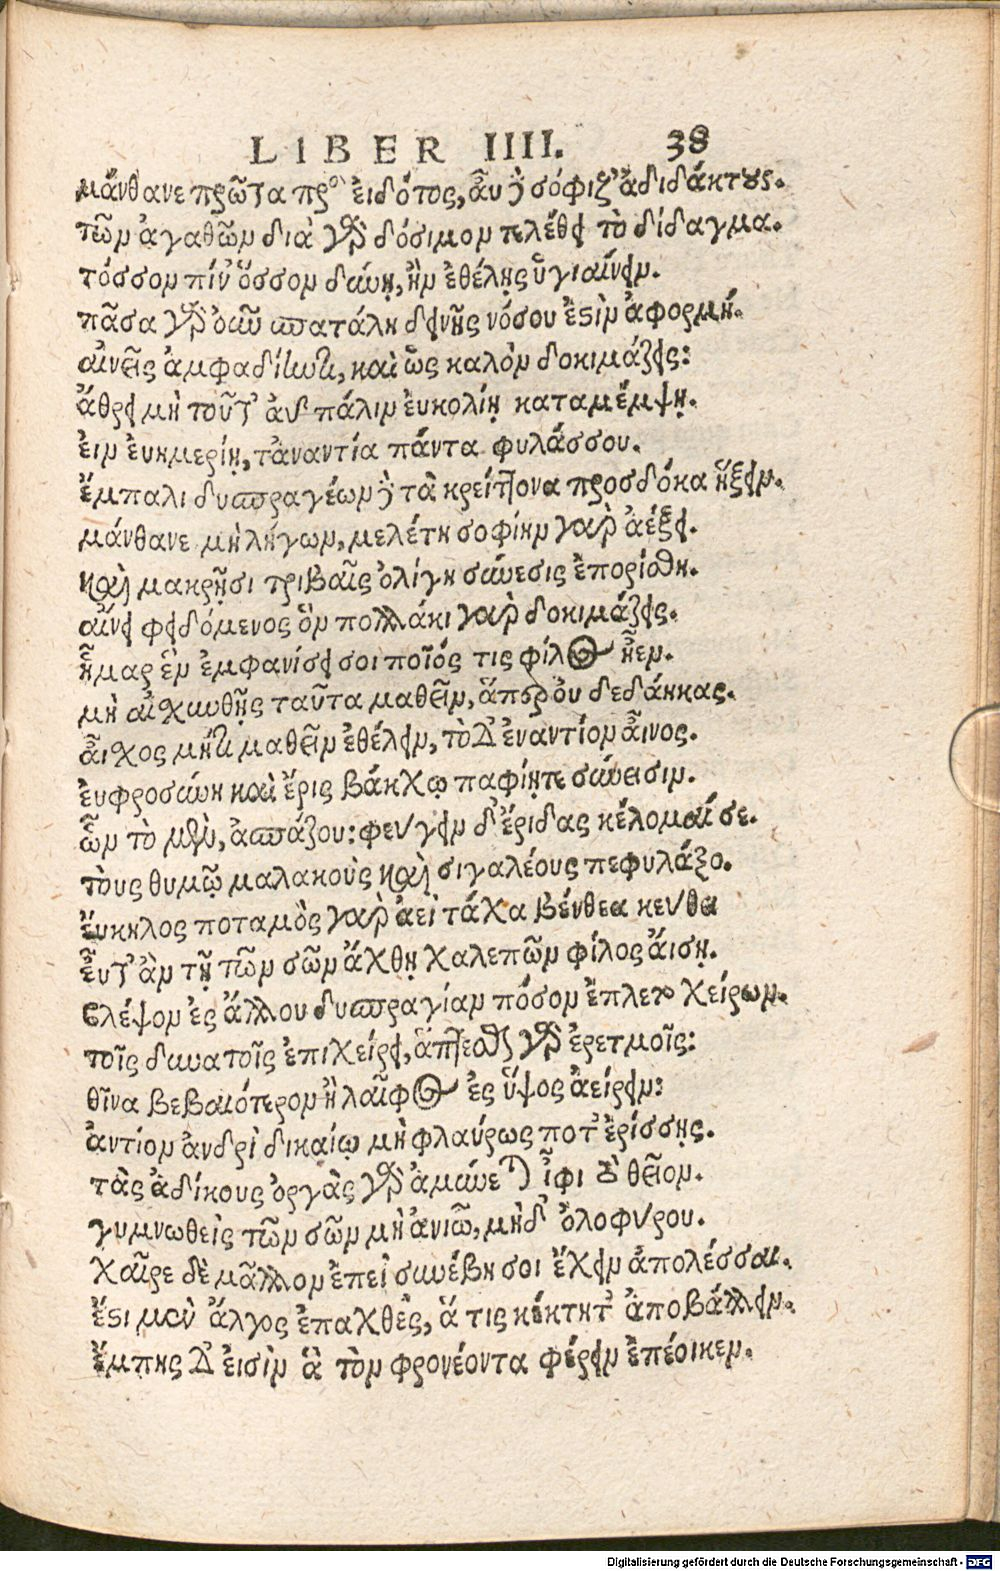 LIBER IIII. 38
μάνθανε πρῶτα πρὸ εἰδότος, ἂν δὲ σόφιζ' ἀδιδάκτους.
τῶν ἀγαθῶν διὰ γὰρ δόσιμον πελέθει τὸ δίδαγμα.
τόσσον πῖν' ὅσσον δώῃ, ἢν ἐθέλῃς ὑγιαίνειν.
πᾶσα γὰρ οὖν σπατάλη δεινῆς νόσου ἐστὶν ἀφορμή.
αἰνεῖς ἀμφαδίως τε, καὶ ὣς καλὸν δοκιμάζεις:
ἄθρει μὴ τοῦτ' αὖ πάλιν εὐκολίῃ καταμέμψῃ.
εἰν εὐημερίῃ, τἀναντία πάντα φυλάσσου.
ἔμπαλι δυσπραγέων δὲ τὰ κρείττονα προσδόκα ἥξειν.
μάνθανε μὴ λήγων, μελέτη σοφίην γὰρ ἀέξει.
καὶ μακρῇσι τριβαῖς ὀλίγη σύνεσις ἐπορίσθη.
αἴνει φειδόμενος ὃν πολλάκι γὰρ δοκιμάζεις.
ἦμαρ ἓν ἐμφανίσει σοι ποῖός τις φίλος ἦεν.
μὴ αἰσχυνθῇς ταῦτα μαθεῖν, ἅπερ οὐ δεδάηκας.
αἶσχος μήτε μαθεῖν ἐθέλειν, τὸ δ' ἐναντίον αἶνος.
εὐφροσύνη καὶ ἔρις βάκχῳ παφίῃ τε σύνεισιν.
ὧν τὸ μὲν, ἀσπάζου: φεύγειν δ' ἔριδας κέλομαί σε.
τοὺς θυμῷ μαλακοὺς καὶ σιγαλέους πεφυλάξο.
εὔκηλος ποταμὸς γὰρ ἀεὶ τάχα βένθεα κεύθει
εὖτ' ἂν τῇ τῶν σῶν ἄχθῃ χαλεπῶν φίλος αἴσῃ.
βλέψον ἐς ἄλλου δυσπραγίαν πόσον ἔπλετο χείρων.
τοῖς δυνατοῖς ἐπιχείρει, ἅπτεσθαι γὰρ ἐρετμοῖς:
θῖνα βεβαιότερον ἢ λαῖφος ἐς ὕψος ἀείρειν:
ἀντίον ἀνδρὶ δικαίῳ μὴ φλαύρως ποτ' ἐρίσσῃς.
τὰς ἀδίκους ὀργὰς γὰρ ἀμύνεται ἶφι τὸ θεῖον.
γυμνωθεὶς τῶν σῶν μὴ ἀνιῶ, μὴ δ' ὀλοφύρου.
χαῖρε δὲ μᾶλλον ἐπεὶ συνέβη σοι ἔχειν ἀπολέσσαι.
ἔστι μὲν ἄλγος ἐπαχθὲς, ἅ τις κέκτητ' ἀποβάλλειν.
ἔμπης δ' εἰσὶν ἃ τὸν φρονέοντα φέρειν ἐπέοικεν.
Digitalisierung gefördert durch die Deutsche Forschungsgemeinschaft - DFG